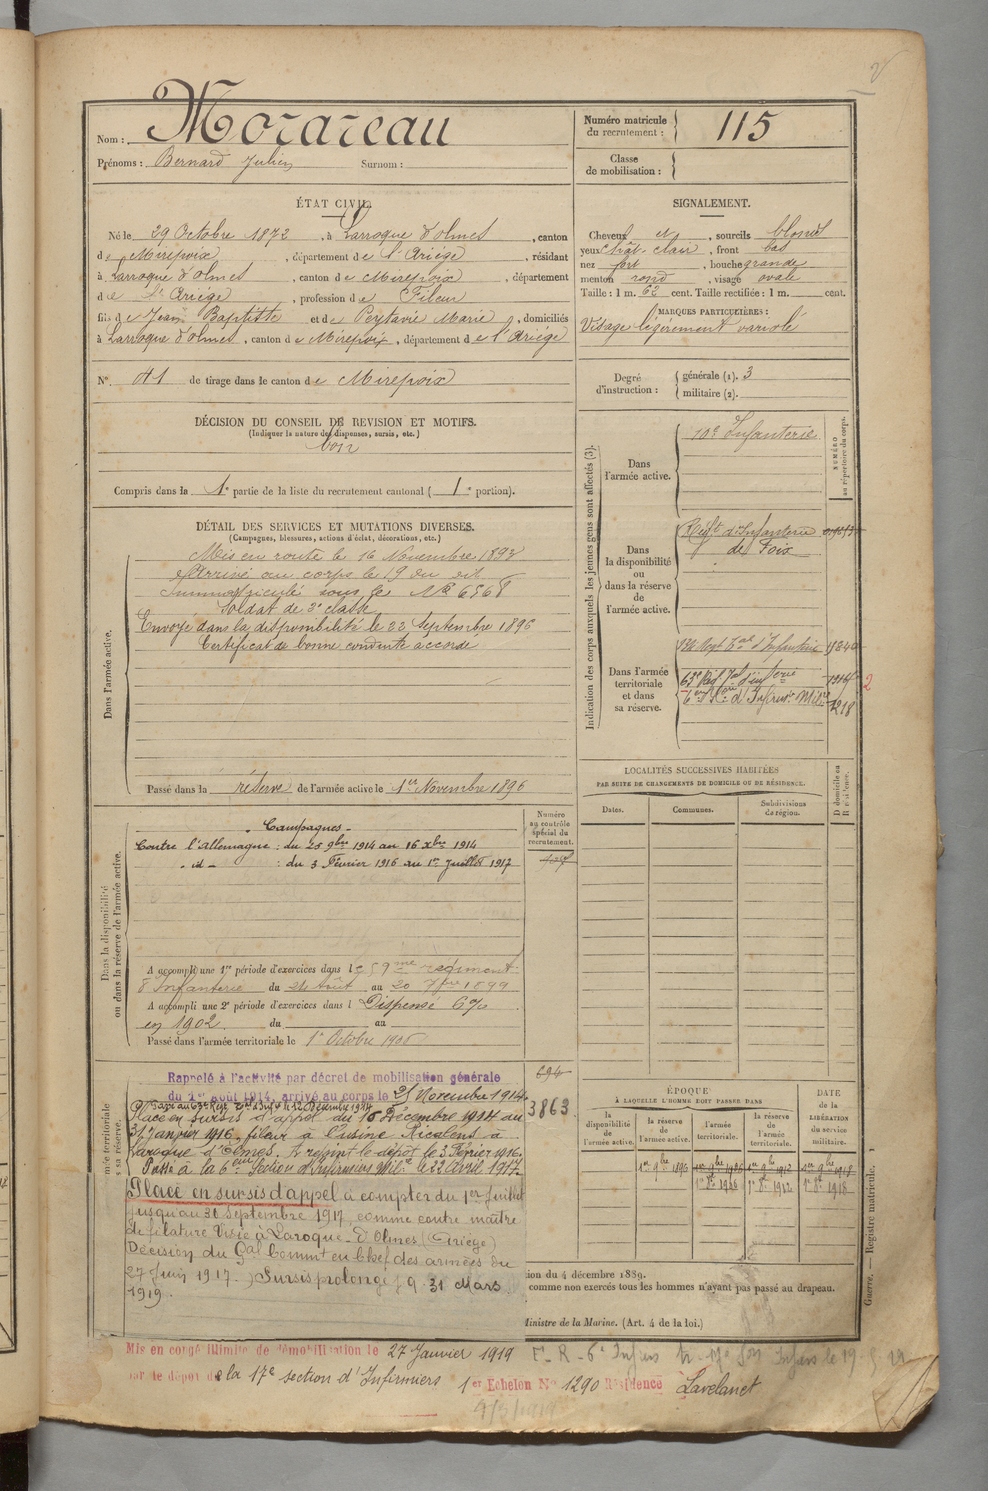 Nom : Morareau
Prénoms : Bernard Julien Surnom :
Numéro matricule du recrutement : 115
Classe de mobilisation :
ÉTAT CIVIL.
Né le 29 Octobre 1872, à Larroque d'olmes, canton
de Mirepoix, département de l'Ariége, résidant
à Larroque d'olmes, canton de Mirepoix, département
de l'Ariége, profession de Fileur
fils de Jean Baptiste et de Peytavie Marie, domiciliés
à Larroque d'olmes, canton de Mirepoix, département de l'Ariége
N° 41 de tirage dans le canton de Mirepoix
SIGNALEMENT.
Cheveux et, sourcils blonds
yeux chât-clair, front bas
nez fort, bouche grande
menton rond, visage ovale
Taille : 1 m. 62 cent. Taille rectifiée : 1 m. cent.
MARQUES PARTICULIÈRES :
Visage légèrement variolé
Degré d'instruction : générale (1). 3
militaire (2).
DÉCISION DU CONSEIL DE REVISION ET MOTIFS.
(Indiquer la nature des dispenses, sursis, etc.)
bon
Compris dans la 1e partie de la liste du recrutement cantonal (1e portion).
DÉTAIL DES SERVICES ET MUTATIONS DIVERSES.
(Campagnes, blessures, actions d'éclat, décorations, etc.)
Dans l'armée active.
Mis en route le 16 Novembre 1893
Arrivé au corps le 19 du dit
Immatriculé sous le N° 6568
Soldat de 2e classe
Envoyé dans la disponibilité le 22 Septembre 1896
Certificat de bonne conduite accordé
Passé dans la réserve de l'armée active le 1er Novembre 1896
Indication des corps auxquels les jeunes gens sont affectés (3).
NUMÉRO au répertoire du corps.
Dans l'armée active.
10e Infanterie
Dans la disponibilité ou dans la réserve de l'armée active.
Regt d'Infanterie
de Foix
Dans l'armée territoriale et dans sa réserve.
63e Rég Tal d'infrie 1914
6e Son d'Infirmrs Milres 1218
2
LOCALITÉS SUCCESSIVES HABITÉES
PAR SUITE DE CHANGEMENTS DE DOMICILE OU DE RÉSIDENCE.
Dates. Communes. Subdivisions de région. D domicile ou R résidence.
Dans la disponibilité ou dans la réserve de l'armée active.
Numéro au contrôle spécial du recrutement.
Campagnes
Contre l'Allemagne : du 25 9bre 1914 au 16 Xbre 1914
- d - : du 3 Février 1916 au 1er Juillet 1917
A accompli une 1re période d'exercices dans le 59me régiment
d'Infanterie du 24 Août au 20 7bre 1899
A accompli une 2e période d'exercices dans l Dispensé
en 1902 du au
Passé dans l'armée territoriale le 1er Octobre 1906
Rappelé à l'activité par décret de mobilisation générale
du 1er Août 1914, arrivé au corps le 25 Novembre 1914
694
3863
Passé au 63e Régt Tal d'Inf le 12 Décembre 1914
Placé en sursis d'appel du 16 Décembre 1914 au
31 Janvier 1916, fileur à l'usine Ricalens à
Laroque d'Olmes. A rejoint le dépôt le 3 Février 1916.
Passé à la 6eme Section d'Infirmiers Milres le 22 Avril 1917.
Placé en sursis d'appel à compter du 1er Juillet
jusqu'au 30 Septembre 1917, comme contre maître
de filature à Laroque-d'Olmes (Ariège)
Décision du Gal Commt en Chef des armées du
27 Juin 1917. Sursis prolongé 31 Mars
1919.
ÉPOQUE
À LAQUELLE L'HOMME DOIT PASSER DANS
la disponibilité de l'armée active.
la réserve de l'armée active.
l'armée territoriale.
la réserve de l'armée territoriale.
DATE de la LIBÉRATION du service militaire.
1er 9bre 1896 1er 9bre 1906 1er 9bre 1912 1er 9bre 1918
1er 8bre 1906 1er 8bre 1912 1er 8bre 1918
ion du 4 décembre 1889.
comme non exercés tous les hommes n'ayant pas passé au drapeau.
Ministre de la Marine. (Art. 4 de la loi.)
Guerre. — Registre matricule.
Mis en congé illimité de démobilisation le 27 Janvier 1919
par le dépôt de la 17e section d'Infirmiers 1er Échelon N° 1290 Résidence Lavelanet